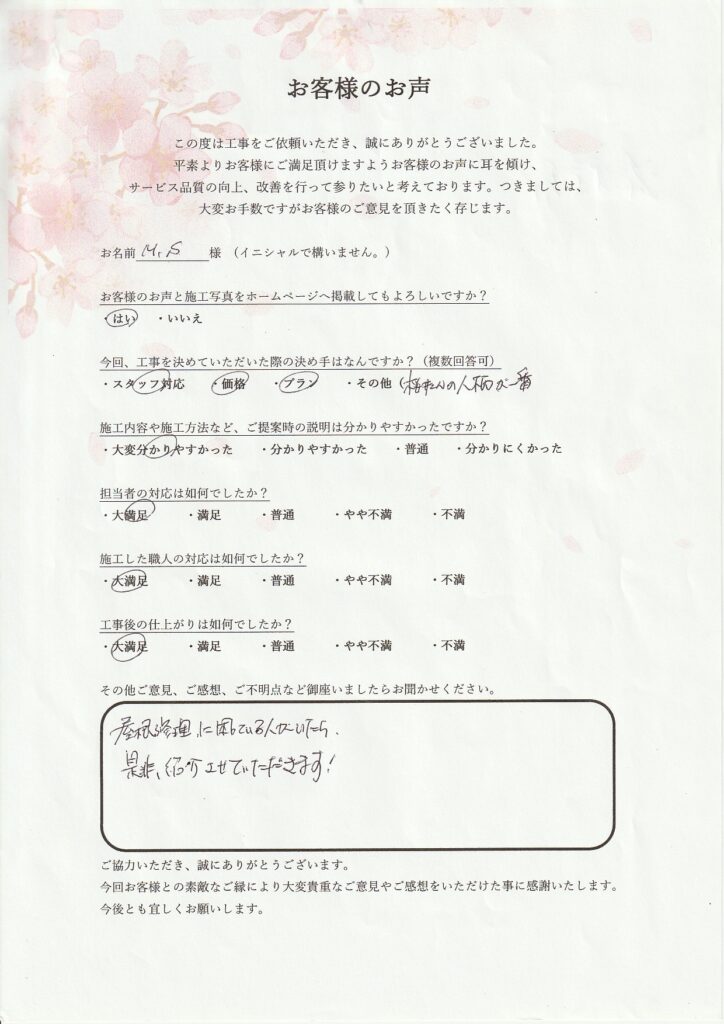 お客様のお声
この度は工事をご依頼いただき、誠にありがとうございました。
平素よりお客様にご満足頂けますようお客様のお声に耳を傾け、
サービス品質の向上、改善を行って参りたいと考えております。つきましては、
大変お手数ですがお客様のご意見を頂きたく存じます。
お名前 Mr S 様 （イニシャルで構いません。）
お客様のお声と施工写真をホームページへ掲載してもよろしいですか？
・はい ・いいえ
今回、工事を決めていただいた際の決め手はなんですか？（複数回答可）
・スタッフ対応 ・価格 ・プラン ・その他（ の人柄が一番
施工内容や施工方法など、ご提案時の説明は分かりやすかったですか？
・大変分かりやすかった ・分かりやすかった ・普通 ・分かりにくかった
担当者の対応は如何でしたか？
・大満足 ・満足 ・普通 ・やや不満 ・不満
施工した職人の対応は如何でしたか？
・大満足 ・満足 ・普通 ・やや不満 ・不満
工事後の仕上がりは如何でしたか？
・大満足 ・満足 ・普通 ・やや不満 ・不満
その他ご意見、ご感想、ご不明点など御座いましたらお聞かせください。
屋根修理に困っている人がいたら、
是非、紹介させていただきます！
ご協力いただき、誠にありがとうございます。
今回お客様との素敵なご縁により大変貴重なご意見やご感想をいただけた事に感謝いたします。
今後とも宜しくお願いします。